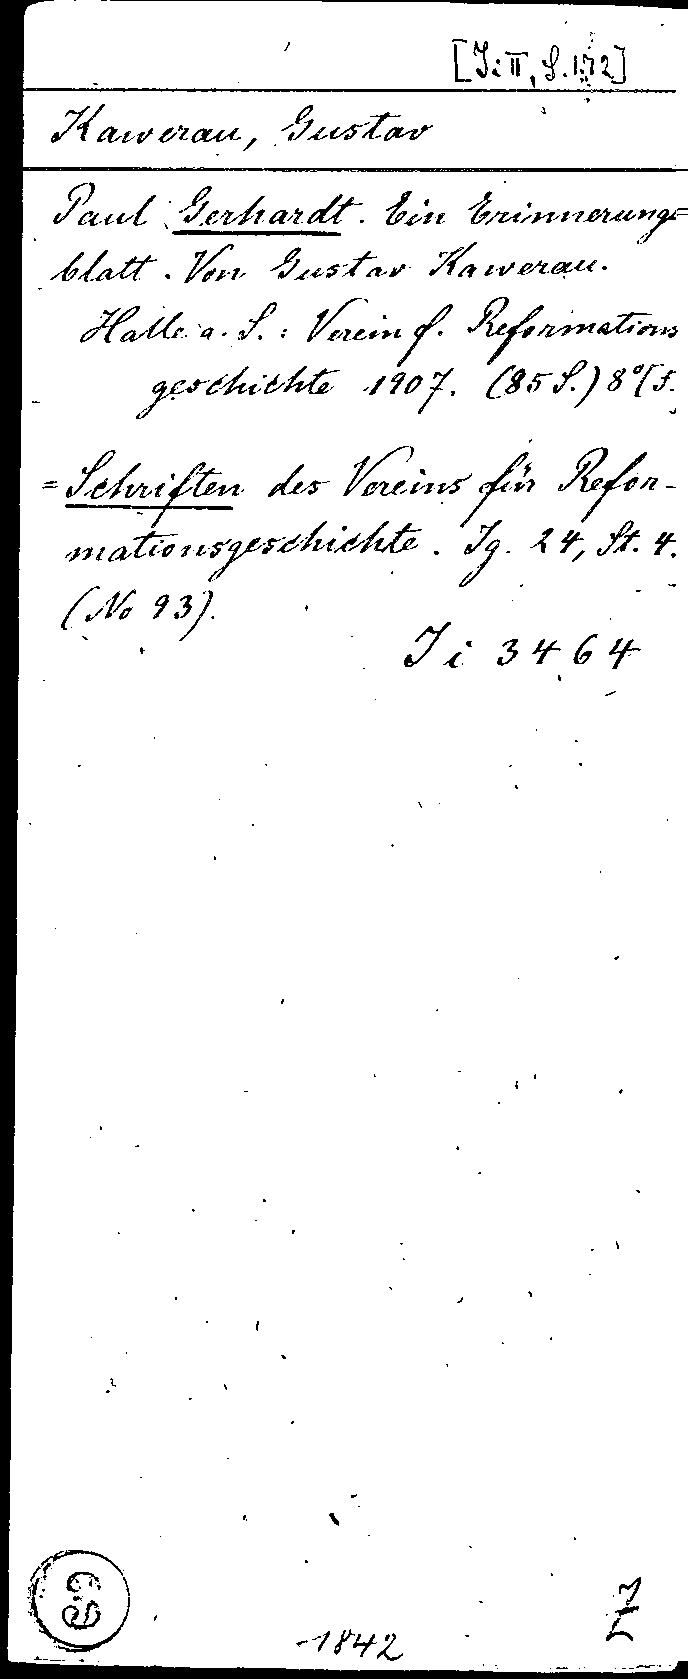 [Ji II, S. 172]
Kawerau, Gustav
Paul Gerhardt. Ein Erinnerungs=
blatt. Von Gustav Kawerau.
Halle a. S.: Verein f. Reformations
geschichte 1907. (85 S.) 8° [f.
= Schriften des Vereins für Refor-
mationsgeschichte. Jg. 24, St. 4.
(No 93).
Ji 3464
1842